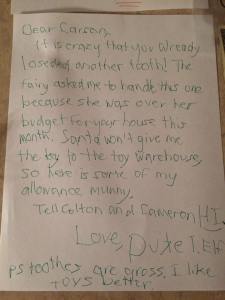 Dear Carson,
It is crazy that you wready
loseded another tooth! The
fairy asked me to handle this one
because she was over her
budget for your house this
month. Santa won't give me
the key to the toy warehouse,
so here is some of my
allowance munny.
Tell Colton and Cameron HI.
Love, Duke T. Elf
PS toothes are gross. I like
TOYS better.